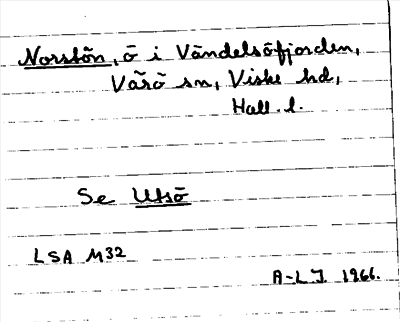 Norstön, ö i Vändelsöfjorden,
Värö sn, Viske hd,
Hall. l.
Se Utsö
LSA M32
A-L.J. 1966.